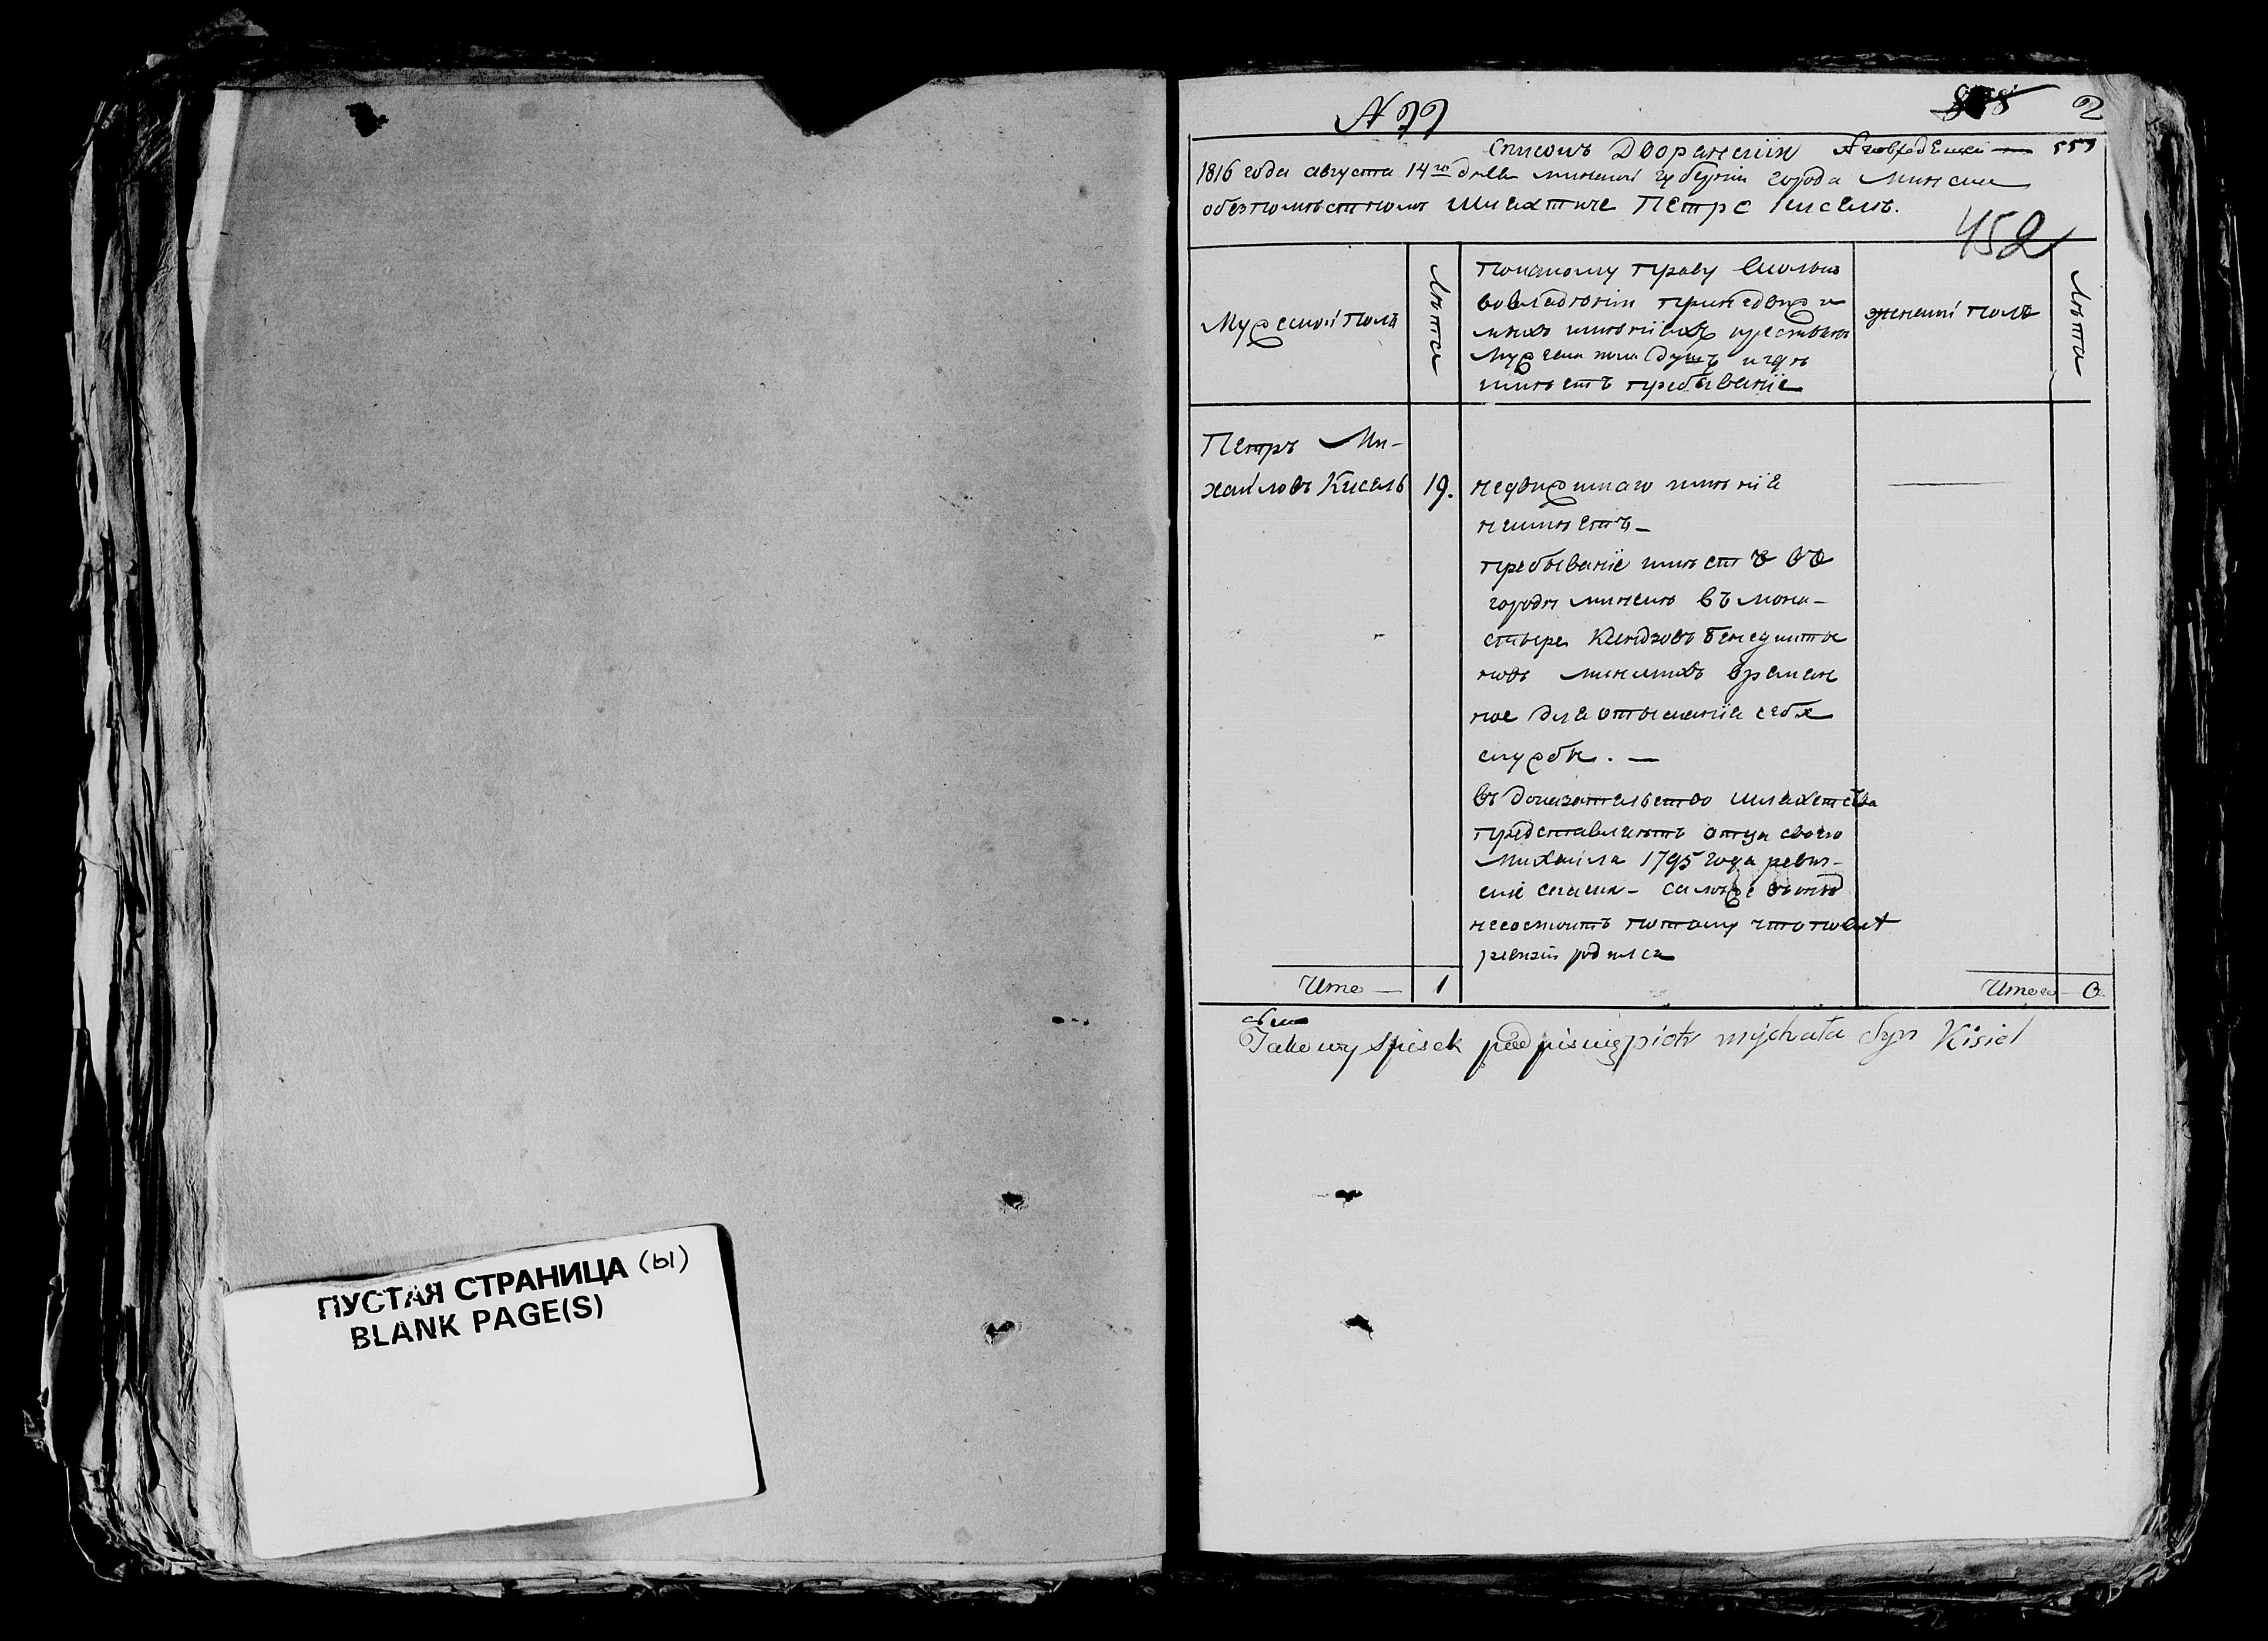 ПУСТАЯ СТРАНИЦА (ы)
BLANK PAGE(S)
2
Списокъ Дворянскій 557
1816 года августа 14го дня минской губерніи города Минска
обезпомѣстномъ шляхтиче Петре Киселѣ.
452
Мужеской полъ
Лѣта
покакому праву Сколько
вовладѣніи
имѣніяхъ крестьянъ
Мужеска пола душъ игдѣ
имѣетъ пребываніе
женскій полъ
Лѣта
Петръ Ми-
хайловъ Кисель 19. недвижимаго имѣнія
неимѣетъ-
пребываніе имѣетъ въ
городѣ минскѣ въ мона-
стыре Ксендзовъ бенедикты
новъ минскихъ времен
ное для отысканія себѣ
службы. —
въ доказательство шляхетства
представляетъ отца своего
Михайла 1795 года ревиз-
скіе сказки-
несостоитъ потому что послѣ
ревизіи родился
Итого — 1
Итого — 0
Takowy spisek podpisuię piotr mychała Syn Kisiel